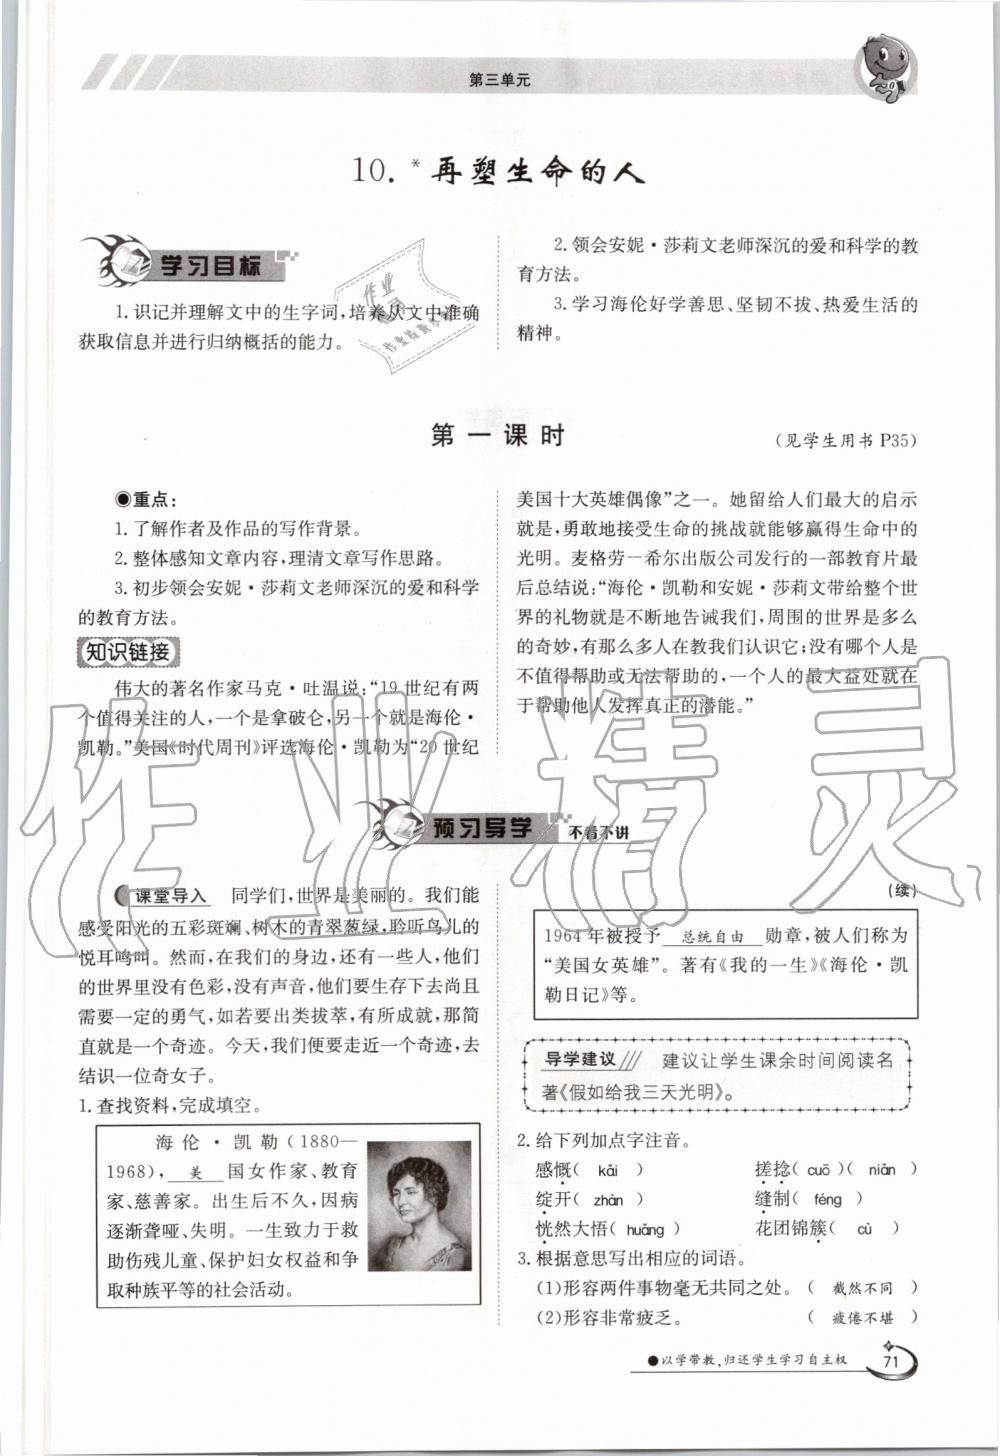 第三单元
10.*再塑生命的人
学习目标
1.识记并理解文中的生字词,培养从文中准确
获取信息并进行归纳概括的能力。
2.领会安妮·莎莉文老师深沉的爱和科学的教
育方法。
3.学习海伦好学善思、坚韧不拔、热爱生活的
精神。
第一课时
(见学生用书 P35)
●重点:
1.了解作者及作品的写作背景。
2.整体感知文章内容,理清文章写作思路。
3.初步领会安妮·莎莉文老师深沉的爱和科学
的教育方法。
知识链接
伟大的著名作家马克·吐温说:“19 世纪有两
个值得关注的人,一个是拿破仑,另一个就是海伦·
凯勒。”美国《时代周刊》评选海伦·凯勒为“20 世纪
美国十大英雄偶像”之一。她留给人们最大的启示
就是,勇敢地接受生命的挑战就能够赢得生命中的
光明。麦格劳—希尔出版公司发行的一部教育片最
后总结说:“海伦·凯勒和安妮·莎莉文带给整个世
界的礼物就是不断地告诫我们,周围的世界是多么
的奇妙,有那么多人在教我们认识它;没有哪个人是
不值得帮助或无法帮助的,一个人的最大益处就在
于帮助他人发挥真正的潜能。”
预习导学 不看不讲
课堂导入 同学们,世界是美丽的。我们能
感受阳光的五彩斑斓、树木的青翠葱绿,聆听鸟儿的
悦耳鸣叫。然而,在我们的身边,还有一些人,他们
的世界里没有色彩,没有声音,他们要生存下去尚且
需要一定的勇气,如若要出类拔萃,有所成就,那简
直就是一个奇迹。今天,我们便要走近一个奇迹,去
结识一位奇女子。
1.查找资料,完成填空。
海伦·凯勒(1880—
1968), 美 国女作家、教育
家、慈善家。出生后不久,因病
逐渐聋哑、失明。一生致力于救
助伤残儿童、保护妇女权益和争
取种族平等的社会活动。
(续)
1964 年被授予 总统自由 勋章,被人们称为
“美国女英雄”。著有《我的一生》《海伦·凯
勒日记》等。
导学建议 建议让学生课余时间阅读名
著《假如给我三天光明》。
2.给下列加点字注音。
感慨( kǎi ) 搓捻( cuō )( niǎn )
绽开( zhàn ) 缝制( féng )
恍然大悟( huǎng ) 花团锦簇( cù )
3.根据意思写出相应的词语。
(1)形容两件事物毫无共同之处。( 截然不同 )
(2)形容非常疲乏。( 疲倦不堪 )
●以学带教,归还学生学习自主权 71
作业精灵